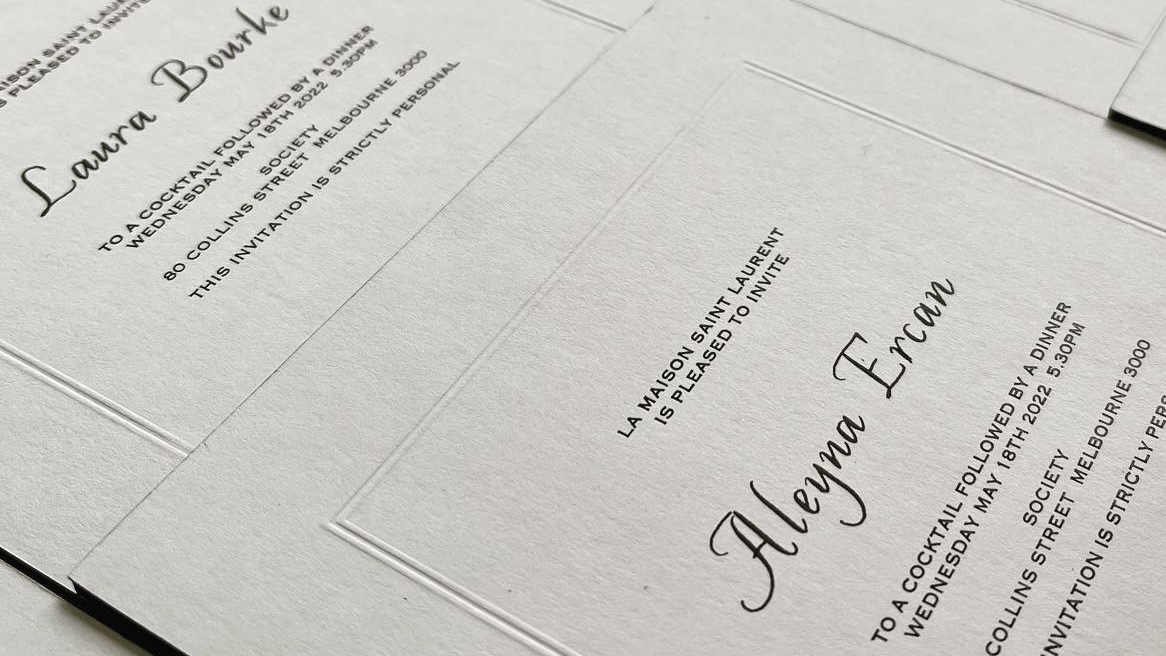 ISON SAINT LAUR
S PLEASED TO INVITE
Laura Bourke
TO A COCKTAIL FOLLOWED BY A DINNER
WEDNESDAY MAY 18TH 2022 5.30PM
SOCIETY
80 COLLINS STREET MELBOURNE 3000
THIS INVITATION IS STRICTLY PERSONAL
LA MAISON SAINT LAURENT
IS PLEASED TO INVITE
Aleyna Ercan
TO A COCKTAIL FOLLOWED BY A DINNER
WEDNESDAY MAY 18TH 2022 5.30PM
SOCIETY
COLLINS STREET MELBOURNE 3000
INVITATION IS STRICTLY PERS